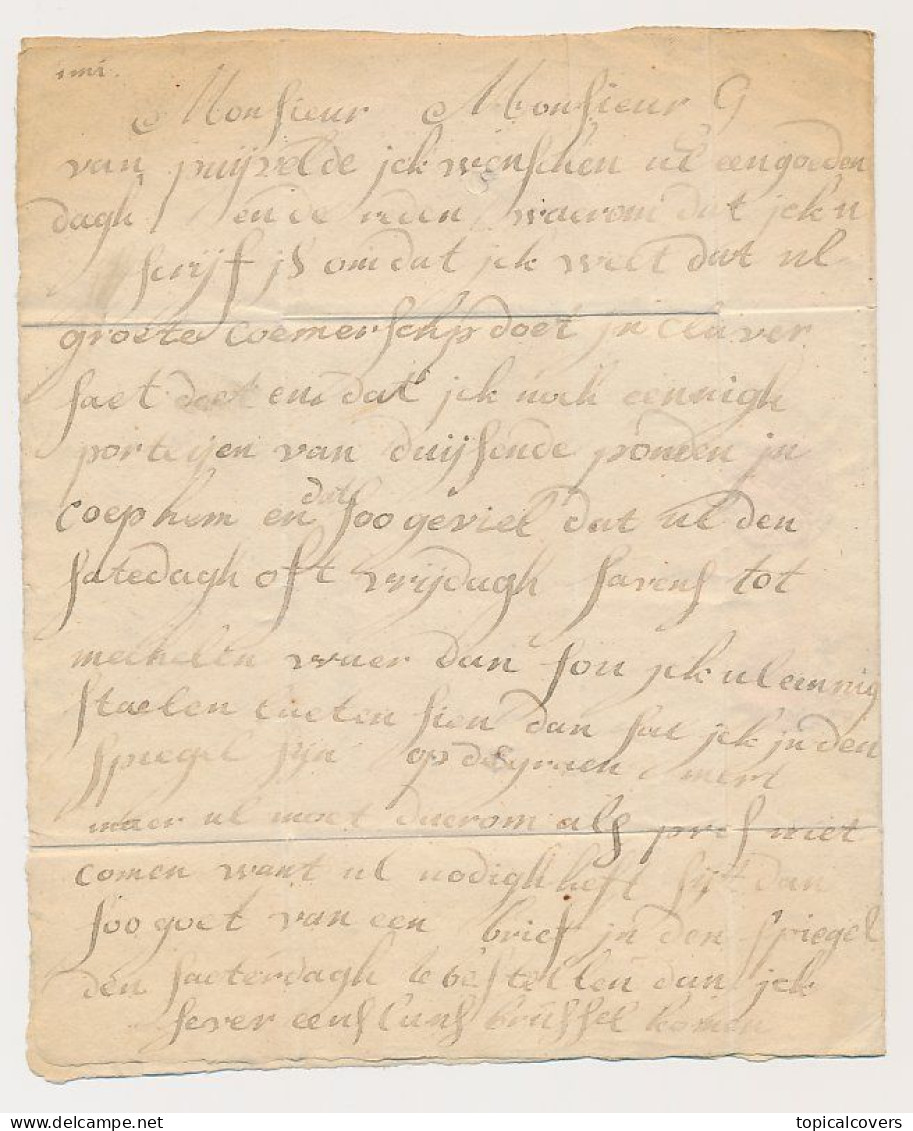 Monsieur Monsieur G
van puijvelde jek wenschen ul een goeden
dagh ende reden waerom dat jck u
scrijf js omdat jck weet dat ul
groete coemerschip doet jn claver
saet doet ende dat jck noch eennigh
porteijen van duijsende ponden jn
coep hem en dat soo geviel dat ul den
satedagh oft vrijdagh savens tot
mechelen waer dan sou jck ul einnig
staelen laeten sien dan sal jck jn den
spiegel sijn op de graen mert
maer ul moet daerom als pres niet
comen want ul nodigh heft sijt dan
soo goet van een brief jn den spiegel
den saeterdagh te bestellen dan jck
sever eens lans brussel komen
topicalcovers